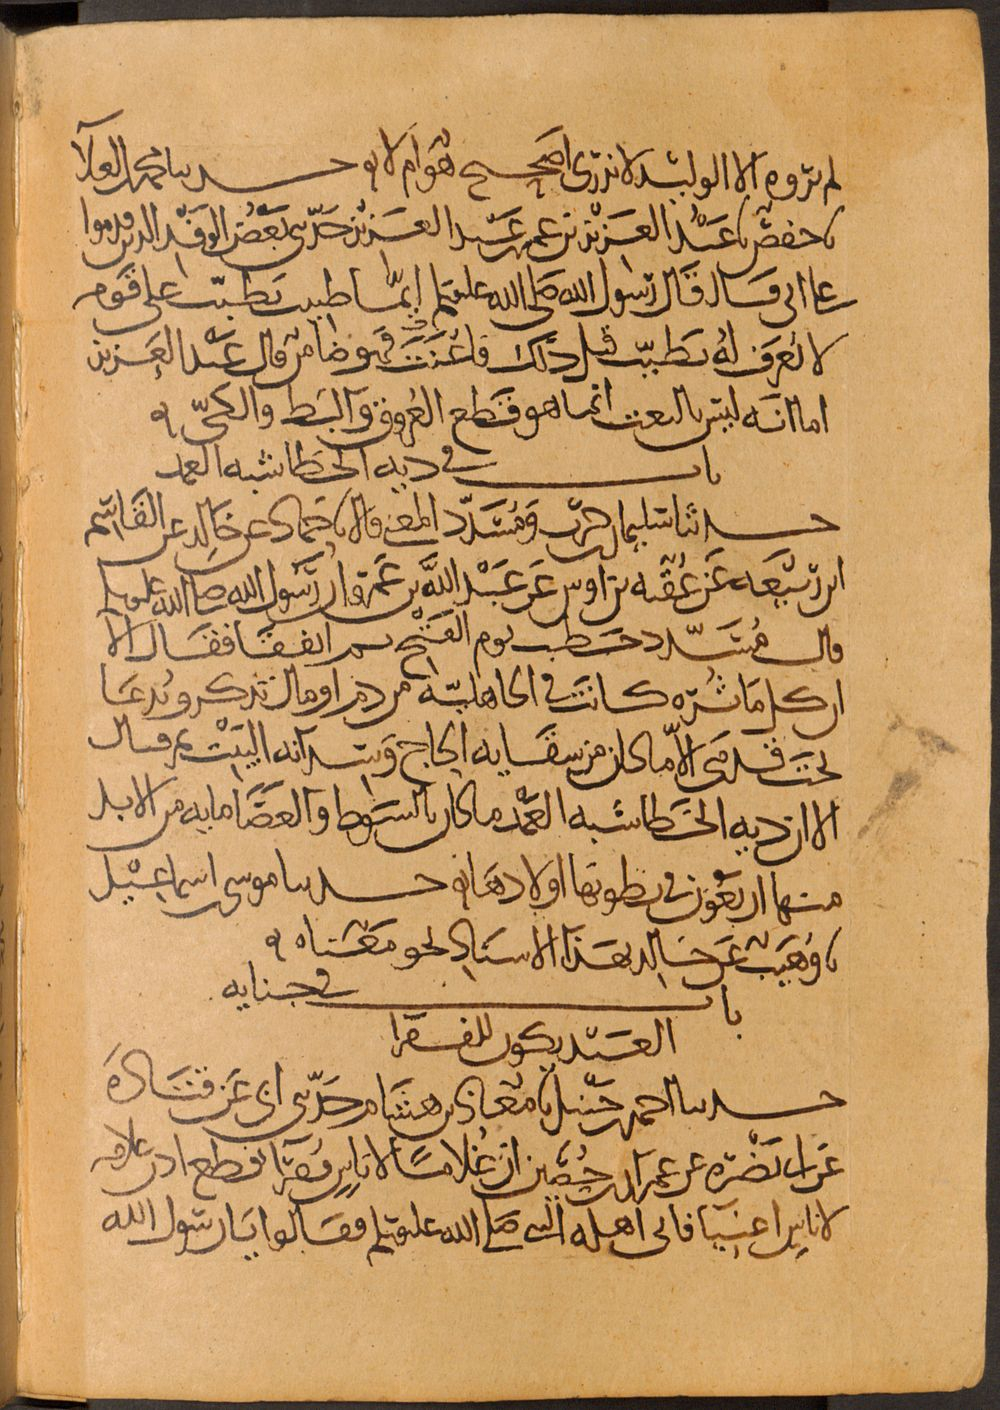 لم يروه الا الوليد لا ندرى اصحيح هو ام لا ه حدثنا محمد بن العلا
نا حفص نا عبد العزيز بن عمر بن عبد العزيز حدثنى بعض الوفد الذين قدموا
على ابى قال قال رسول الله صلى الله عليه وسلم ايما طبيب تطبب على قوم
لا يعرف له تطبب قبل ذلك فاعنت فهو ضامن قال عبد العزيز
اما انه ليس بالنعت انما هو قطع العروق والبط والكى ه
باب فى ديه الخطا شبه العمد
حدثنا سليمان بن حرب ومسدد المعنى قالا نا حماد عن خالد عن القاسم
ابن ربيعه عن عقبه بن اوس عن عبد الله بن عمرو ان رسول الله صلى الله عليه وسلم
قال مسدد خطب يوم الفتح ثم اتفقا فقال الا
ان كل ماثره كانت فى الجاهلية من دم او مال تذكر وتدعا
تحت قدمى الا ما كان من سقايه الحاج وسدانه البيت ثم قال
الا ان ديه الخطا شبه العمد ما كان بالسوط والعصا مايه من الابل
منها اربعون فى بطونها اولادها ه حدثنا موسى بن اسماعيل
نا وهيب عن خالد بهذا الاسناد نحو معناه ه
باب فى جنايه
العبد يكون للفقرا
حدثنا احمد بن حنبل نا معاذ بن هشام حدثنى ابى عن قتادة
عن ابى نضره عن عمران بن حصين ان غلاما لاناس فقرا قطع اذن غلام
لاناس اغنيا فاتى اهله النبى صلى الله عليه وسلم فقالوا يا رسول الله